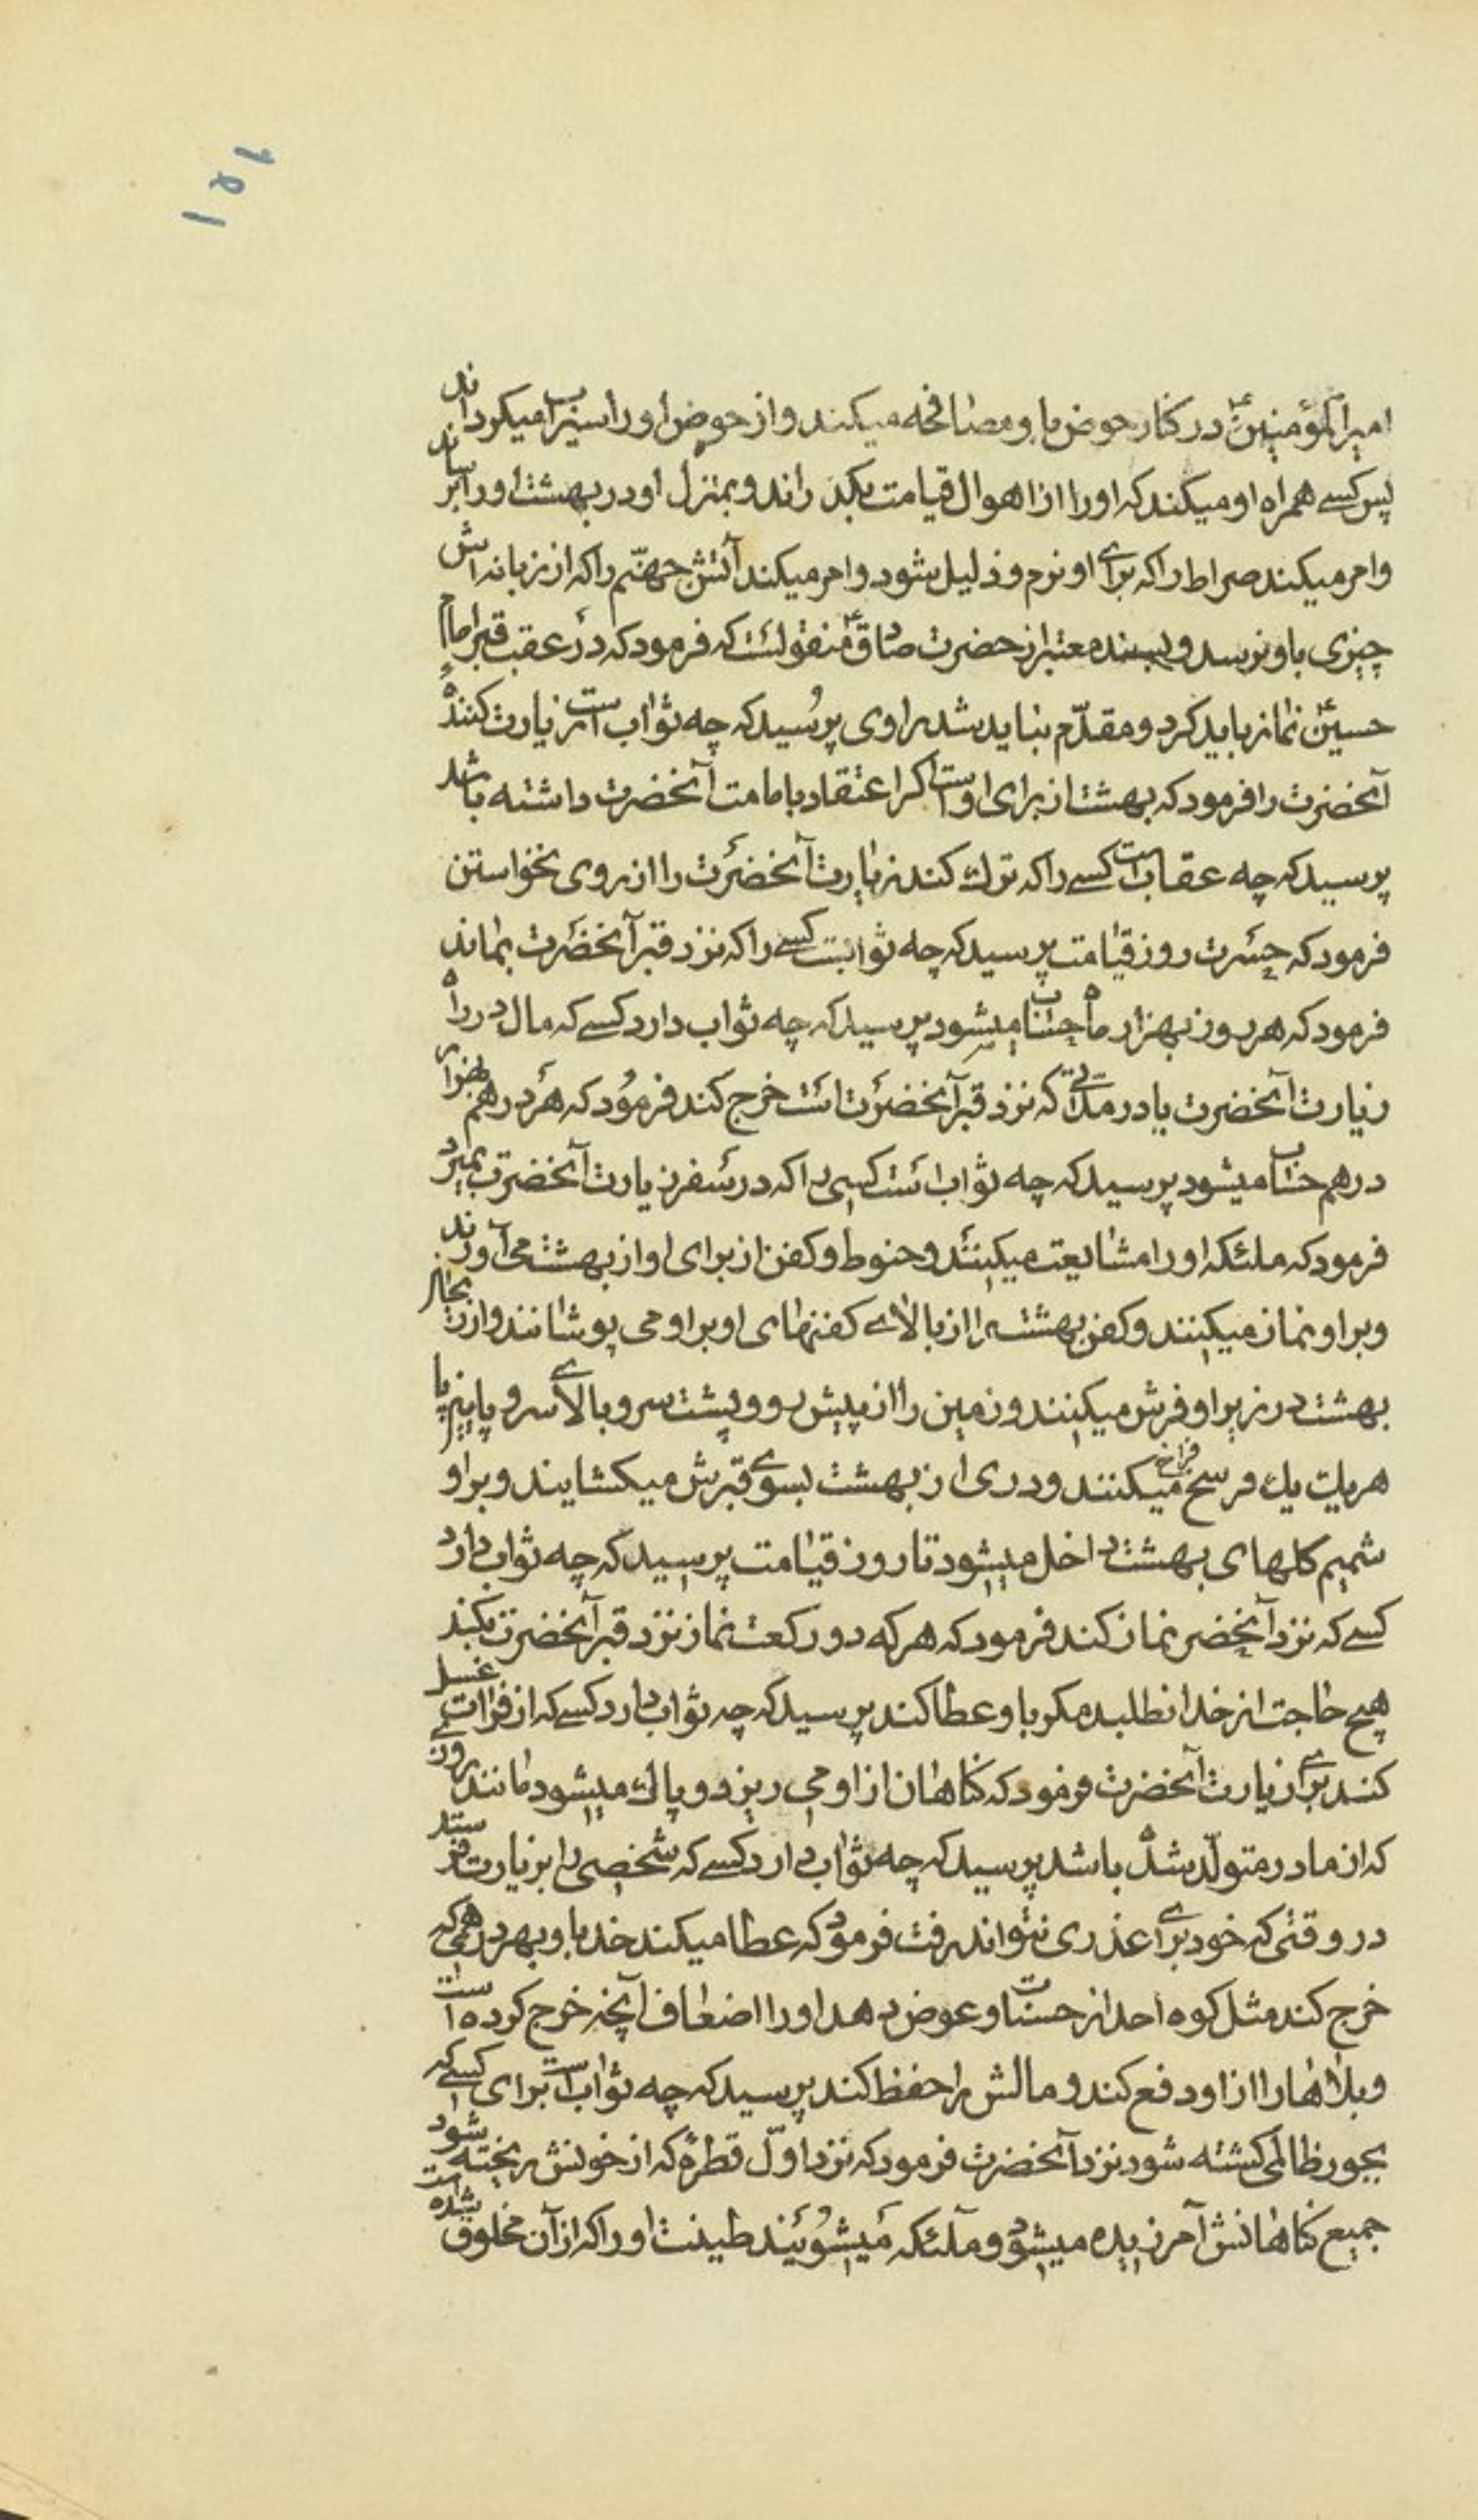 ۱۵۱
امیرالمؤمنینؑ در کنار حوض باو مصافحه میکند و از حوض او را سیراب میکرداند
پس کسے همراه او میکند که او را از اهوال قیامت بکذراند و بمنزل او در بهشت او را برساند
و امر میکند صراط را که براے او نرم و ذلیل شود و امر میکند آتش جهنّم را که از زبانه اش
چیزی باو نرسد و بسند معتبر از حضرت صادقؑ منقولست که فرمود که در عقب قبر امام
حسینؑ نماز باید کرد و مقدّم نباید شد راوی پرسید که چه ثواب است زیارت کنندهٔ
آنحضرت را فرمود که بهشت از برای اوست اکر اعتقاد بامامت آنحضرت داشته باشد
پرسید که چه عقابست کسے را که ترك کند زیارت آنحضرت را از روی نخواستن
فرمود که حسرت روز قیامت پرسید که چه ثوابست کسے را که نزد قبر آنحضرت بماند
فرمود که هر روز بهزار ماه حساب میشود پرسید که چه ثواب دارد کسے که مال در راه
زیارت آنحضرت یا در مدّتے که نزد قبر آنحضرت است خرج کند فرمود که هر درهم بهزار
درهم حساب میشود پرسید که چه ثواب است کسی را که در سفر زیارت آنحضرت بمیرد
فرمود که ملئکه او را مشایعت میکنند و حنوط و کفن از برای او از بهشت می آورند
و بر او نماز میکنند و کفن بهشت را از بالاے کفنهای او بر او می پوشانند و از ریحان
بهشت در زیر او فرش میکنند و زمین را از پیش رو و پشت سر و بالاے سر و پایین پا
هر یك یك فرسخ فراخ میکنند و دری از بهشت بسوے قبرش میکشایند و بر او
شمیم کلهای بهشت داخل میشود تا روز قیامت پرسید که چه ثواب دارد
کسے که نزد آنحضرت نماز کند فرمود که هر که دو رکعت نماز نزد قبر آنحضرت بکند
هیچ حاجت از خدا نطلبد مکر باو عطا کند پرسید که چه ثواب دارد کسے که از فرات غسل
کند براے زیارت آنحضرت فرمود که کناهان از او می ریزد و پاك میشود مانند روزے
که از مادر متولّد شده باشد پرسید که چه ثواب دارد کسے که شخصی را بزیارت فرستد
در وقتی که خود براے عذری نتواند رفت فرمود که عطا میکند خدا باو بهر درهمی که
خرج کند مثل کوه احد از حسنات و عوض دهد او را اضعاف آنچه خرج کرده است
و بلاها را از او دفع کند و مالش را حفظ کند پرسید که چه ثوابست برای کسے که
بجور ظالمی کشته شود نزد آنحضرت فرمود که نزد اوّل قطرهٔ که از خونش ریخته شود
جمیع کناهانش آمرزیده میشود و ملئکه میشویند طینت او را که از آن مخلوق شده است